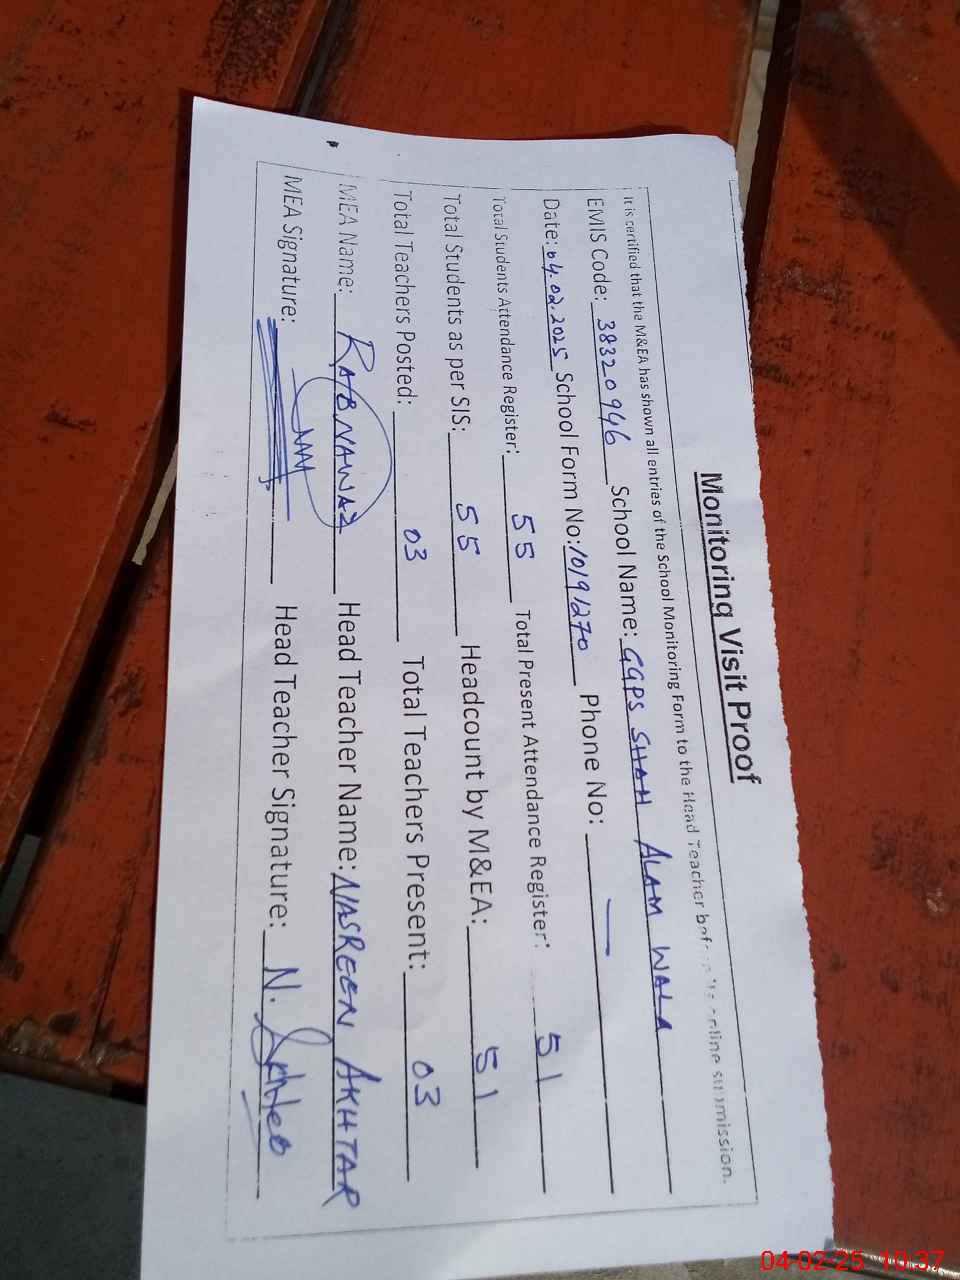 Monitoring Visit Proof
It is certified that the M&EA has shown all entries of the School Monitoring Form to the Head Teacher before its online submission.
EMIS Code: 38320946 School Name: GGPS SHAH ALAM WALA
Date: 04.02.2025 School Form No: 10191270 Phone No: —
Total Students Attendance Register: 55 Total Present Attendance Register: 51
Total Students as per SIS: 55 Headcount by M&EA: 51
Total Teachers Posted: 03 Total Teachers Present: 03
MEA Name: RAB NAWAZ Head Teacher Name: NASREEN AKHTAR
MEA Signature: Head Teacher Signature: N.
04-02-25 10:37